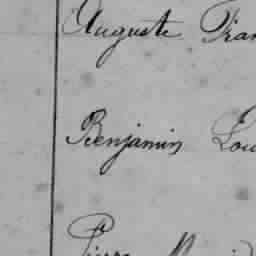 Auguste Fran
Benjamin Lou
Pierre